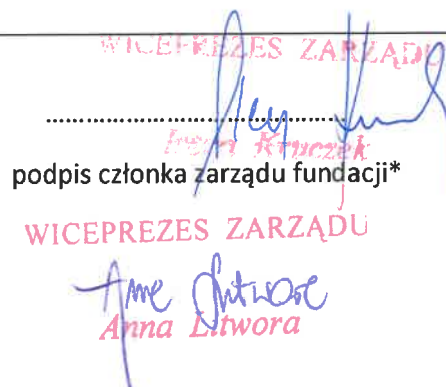 WICEPREZES ZARZĄDU
........................................
Kruczek
podpis członka zarządu fundacji*
WICEPREZES ZARZĄDU
Anna Litwora
Anna Litwora